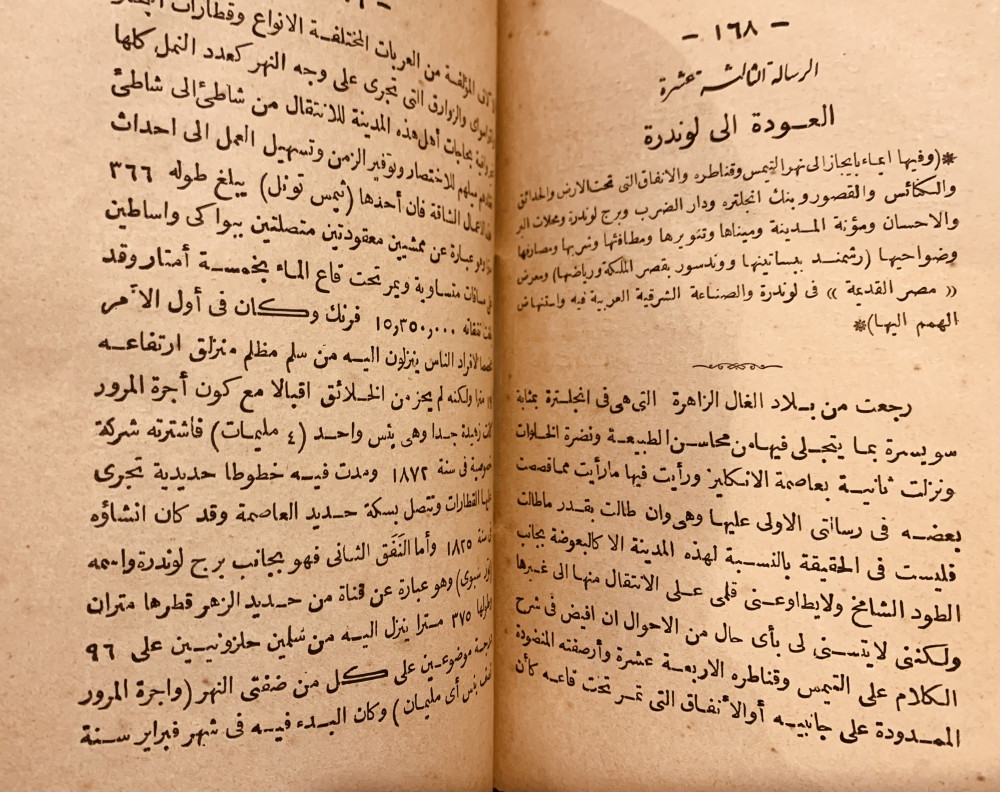 - ١٦٨ -
الرسالة الثالثة عشرة
العودة الى لوندرة
*(وفيها ايماء بايجاز الى نهر التيمس وقناطره والانفاق التى تحت الارض والحدائق
والكنائس والقصور وبنك انجلتره ودار الضرب وبرج لوندرة ومحلات البر
والاحسان ومؤنة المدينة وميناها وتنويرها ومطافئها وشربها ومصارفها
وضواحيها (رشمند ببساتينها ووندسور بقصر الملكة ورياضها) ومعرض
« مصر القديمة » فى لوندرة والصناعة الشرقية العربية فيه واستنهاض
الهمم اليها)*
رجعت من بلاد الغال الزاهرة التى هى فى انجلترة بمثابة
سويسرة بما يتجلى فيها من محاسن الطبيعة ونضرة الخلوات
ونزلت ثانية بعاصمة الانكليز ورأيت فيها ما رأيت مما قصصت
بعضه فى رسالتى الاولى عليها وهى وان طالت بقدر ما طالت
فليست فى الحقيقة بالنسبة لهذه المدينة الا كالبعوضة بجانب
الطود الشامخ ولا يطاوعنى قلمى على الانتقال منها الى غيرها
ولكننى لا يتسنى لى بأى حال من الاحوال ان افيض فى شرح
الكلام على التيمس وقناطره الاربعة عشرة وأرصفته المنضودة
الممدودة على جانبيه أو الأنفاق التى تمر تحت قاعه كأن
المؤلفة من العربات المختلفة الانواع وقطارات
والزوارق التى تجرى على وجه النهر كعدد النمل كلها
بحاجات أهل هذه المدينة للانتقال من شاطئ الى شاطئ
ميلهم للاختصار وتوفير الزمن وتسهيل العمل الى احداث
الاعمال الشاقة فان أحذها (ثيمس تونل) يبلغ طوله ٣٦٦
وهو عبارة عن ممشيين معقودتين متصلتين ببواكى واساطين
مسافات متساوية ويمر تحت قاع الماء بخمسة أمتار وقد
نفقاته ١٥٫٣٥٠٫٠٠٠ فرنك وكان فى أول الأمر
لافراد الناس ينزلون اليه من سلم مظلم منزلق ارتفاعه
مترا ولكنه لم يحز من الخلائق اقبالا مع كون أجرة المرور
كانت زهيدة جدا وهى بنس واحد (٤ مليمات) فاشترته شركة
خصوصية فى سنة ١٨٧٢ ومدت فيه خطوطا حديدية تجرى
عليها القطارات وتتصل بسكة حديد العاصمة وقد كان انشاؤه
فى سنة ١٨٢٥ وأما النَّفَق الثانى فهو بجانب برج لوندرة واسمه
وهو عبارة عن قناة من حديد الزهر قطرها متران
وطولها ٣٧٥ مترا ينزل اليه من سلمين حلزونيين على ٩٦
درجة موضوعين على كل من ضفتى النهر (واجرة المرور
نصف بنس أى مليمان) وكان البدء فيه فى شهر فبراير سنة